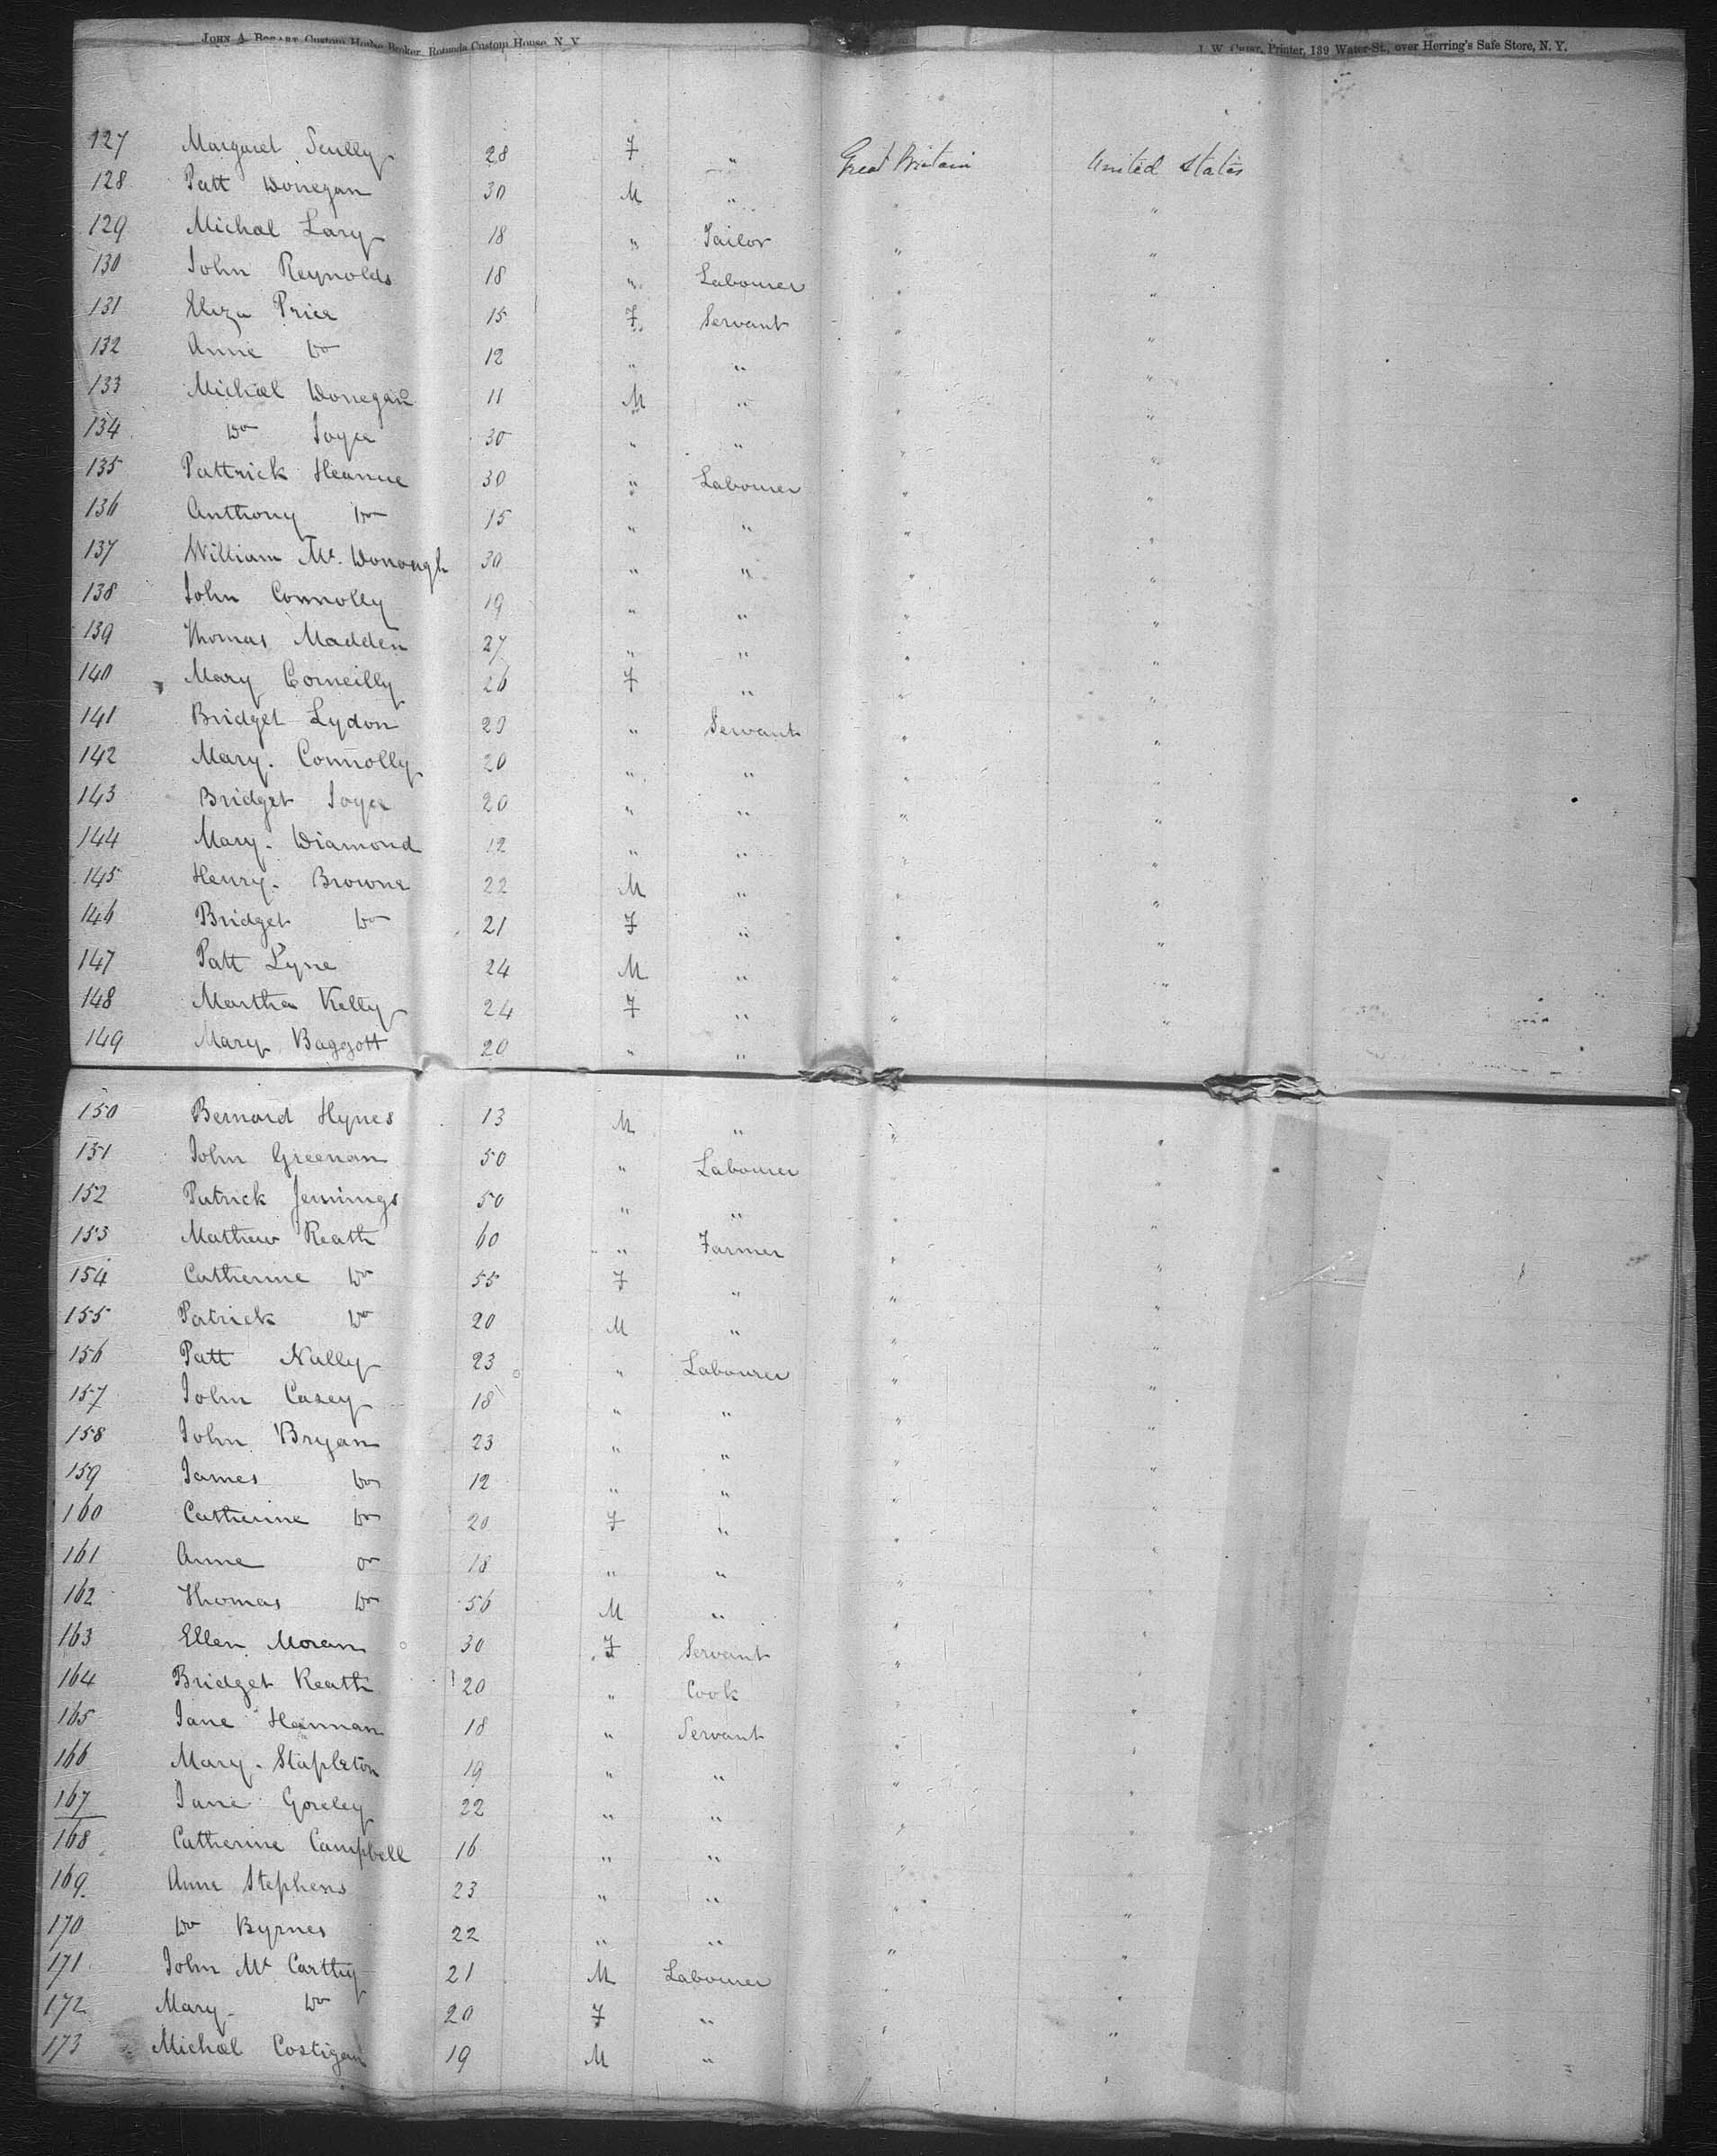 JOHN A. BOGART, Custom House Broker, Rotunda Custom House, N. Y. Printer, 139 Water-St., over Herring's Safe Store, N. Y.
127 Margaret Scully 28 F " Great Britain United States
128 Patt Donegan 30 M " " "
129 Michael Lary 18 " Tailor " "
130 John Reynolds 18 " Labourer " "
131 Eliza Price 15 F Servant " "
132 Anne Do 12 " " " "
133 Michael Donegan 11 M " " "
134 Do Joyce 30 " " " "
135 Pattrick Heanue 30 " Labourer " "
136 Anthony Do 15 " " " "
137 William Mc. Donough 30 " " " "
138 John Connolly 19 " " " "
139 Thomas Madden 27 " " " "
140 Mary Corneilly 26 F " " "
141 Bridget Lydon 20 " Servant " "
142 Mary. Connolly 20 " " " "
143 Bridget Joyce 20 " " " "
144 Mary. Diamond 12 " " " "
145 Henry. Browne 22 M " " "
146 Bridget Do 21 F " " "
147 Patt Lyne 24 M " " "
148 Martha Kelly 24 F " " "
149 Mary Baggott 20 " "
150 Bernard Hynes 13 M " " "
151 John Greenan 50 " Labourer " "
152 Patrick Jennings 50 " " " "
153 Mathew Keath 60 " Farmer " "
154 Catherine Do 55 F " " "
155 Patrick Do 20 M " " "
156 Patt Nally 23 " Labourer " "
157 John Casey 18 " " " "
158 John Bryan 23 " " " "
159 James Do 12 " " " "
160 Catherine Do 20 F " " "
161 Anne Do 18 " " " "
162 Thomas Do 56 M " " "
163 Ellen Moran 30 F Servant " "
164 Bridget Keath 20 " Cook " "
165 Jane Hannan 18 " Servant " "
166 Mary. Stapleton 19 " " " "
167 Jane Goreley 22 " " " "
168 Catherine Campbell 16 " " " "
169. Anne Stephens 23 " " " "
170 Do Byrnes 22 " " " "
171 John Mc Carthy 21 M Labourer " "
172 Mary. Do 20 F " " "
173 Michael Costigan 19 M "